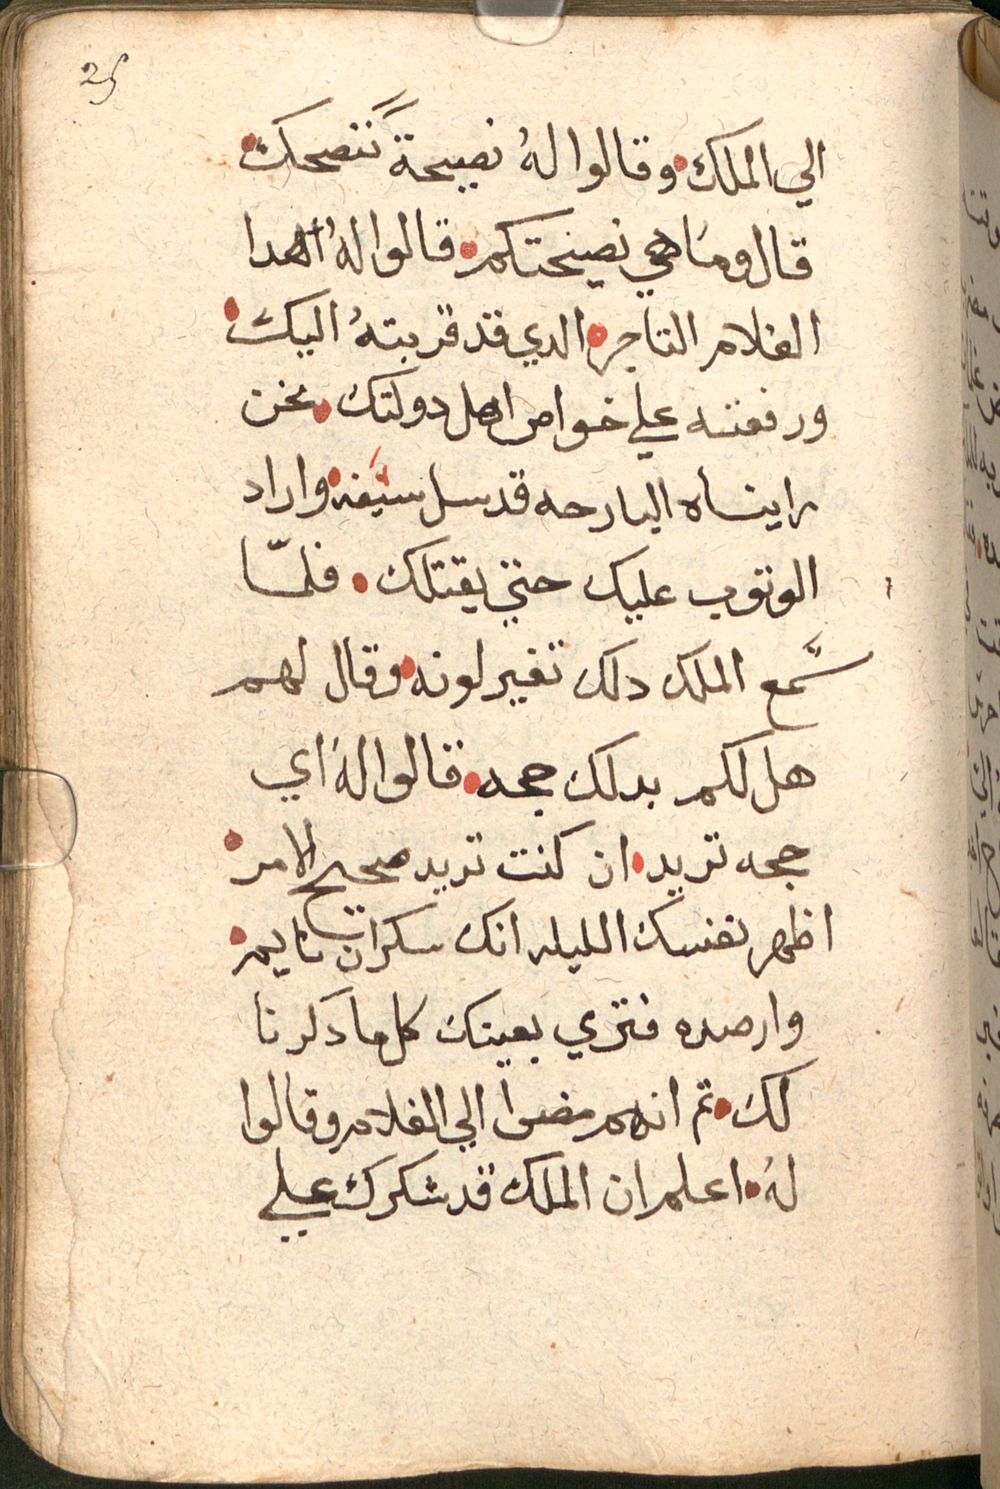 25
الي الملك • وقالوا لهُ نصيحةً ننصحك •
قال وما هي نصيحتكم • قالوا لهُ ان هدا
الغلام التاجر • الدي قد قربتهُ اليك •
ورفعته علي خواص اهل دولتك • نحن
رايناه البارحه قد سل سيفه • واراد
الوتوب عليك حتي يقتلك • فلمّا
سمع الملك دلك تغير لونه • وقال لهم
هل لكم بدلك حجه • قالوا لهُ اي
حجه تريد • ان كنت تريد صحيح الامر •
اظهر نفسك الليله انك سكران نايم •
وارصده فتري بعينك كلما دكرنا
لك • تم انهم مضوا الي الغلام وقالوا
لهُ • اعلم ان الملك قد شكرك علي